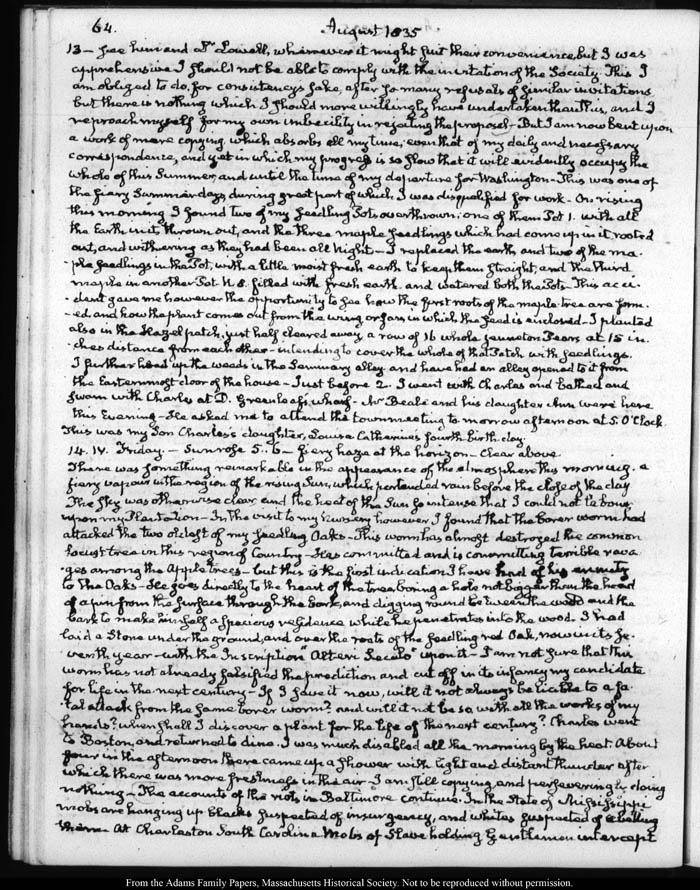 64.
August 1835
13 – see him and Dr Lowell, whenever it might suit their convenience, but I was
apprehensive I should not be able to comply with the invitation of the Society. This I
am obliged to do, for consistency's sake, after so many refusals of similar invitations
but there is nothing which I should more willingly have undertaken than this, and I
reproach myself for my own imbecility in rejecting the proposal – But I am now bent upon
a work of mere copying, which absorbs all my time; even that of my daily and necessary
correspondence, and yet in which my progress is so slow that it will evidently occupy the
whole of this Summer, and until the time of my departure for Washington – This was one of
the fiery Summer days, during great part of which, I was disqualified for work – On rising
this morning I found two of my seedling Pots overthrown; one of them Pot 1. with all
the Earth in it, thrown out, and the three maple seedlings which had come up in it, rooted
out, and withering as they had been all Night – I replaced the earth and two of the ma-
-ple seedlings in the Pot, with a little moist fresh earth to keep them straight, and the third
maple in another Pot N. 8. filled with fresh earth. and watered both the Pots – This acci-
-dent gave me however the opportunity to see how the first roots of the maple tree are form-
-ed, and how the plant comes out from the wing or fan, in which the seed is enclosed – I planted
also in the Hazel patch, just half cleared away a row of 16 whole Jeuneton Pears at 15 in-
-ches distance from each other – intending to cover the whole of that Patch with seedlings.
I further hoed up the weeds in the Seminary alley and have had an alley opened to it from
the Easternmost door of the house – Just before 2. I went with Charles and bathed and
swam with Charles at D. Greenleaf's wharf – Mr Beale and his daughter Ann were here
this Evening – He asked me to attend the town meeting to morrow afternoon at 5. O'Clock.
This was my Son Charles's daughter, Louisa Catherine's fourth birth day.
14. IV. Friday. – Sun rose 5. 6 – fiery haze at the horizon – Clear above
There was something remarkable in the appearance of the atmosphere this morning. a
fiery vapour in the region of the rising Sun, which portended rain before the close of the day
The Sky was otherwise clear and the heat of the Sun so intense that I could not labour
upon my Plantation – In the visit to my Nursery however I found that the borer worm had
attacked the two oldest of my seedling Oaks – This worm has almost destroyed the common
locust tree in this region of Country – Has committed and is committing terrible rava-
-ges among the Apple trees – but this is the first indication I have had of his enmity
to the Oaks – He goes directly to the heart of the tree, boring a hole not bigger than the head
of a pin from the surface through the bark, and digging round between the wood and the
bark to make himself a specious residence while he penetrates into the wood. I had
laid a Stone under the ground, and over the roots of the seedling red Oak, now in its se-
venth year – with the Inscription "Alteri Seculo" upon it – I am not sure that this
worm has not already falsified the prediction and cut off in its infancy my candidate
for life in the next century – If I save it now, will it not always be liable to a fa-
-tal attack from the same borer worm? and will it not be so with all the works of my
hands? when shall I discover a plant for the life of the next century? Charles went
to Boston, and returned to dine. I was much disabled all the morning by the heat. About
four in the afternoon there came up a shower with light and distant thunder after
which there was more freshness in the air – I am still copying and persevering in doing
nothing – The accounts of the riots in Baltimore continue. In the State of Mississippi
mobs are hanging up blacks suspected of insurgency, and whites suspected of abetting
them – At Charleston South Carolina Mobs of Slave holding Gentlemen intercept
From the Adams Family Papers, Massachusetts Historical Society. Not to be reproduced without permission.